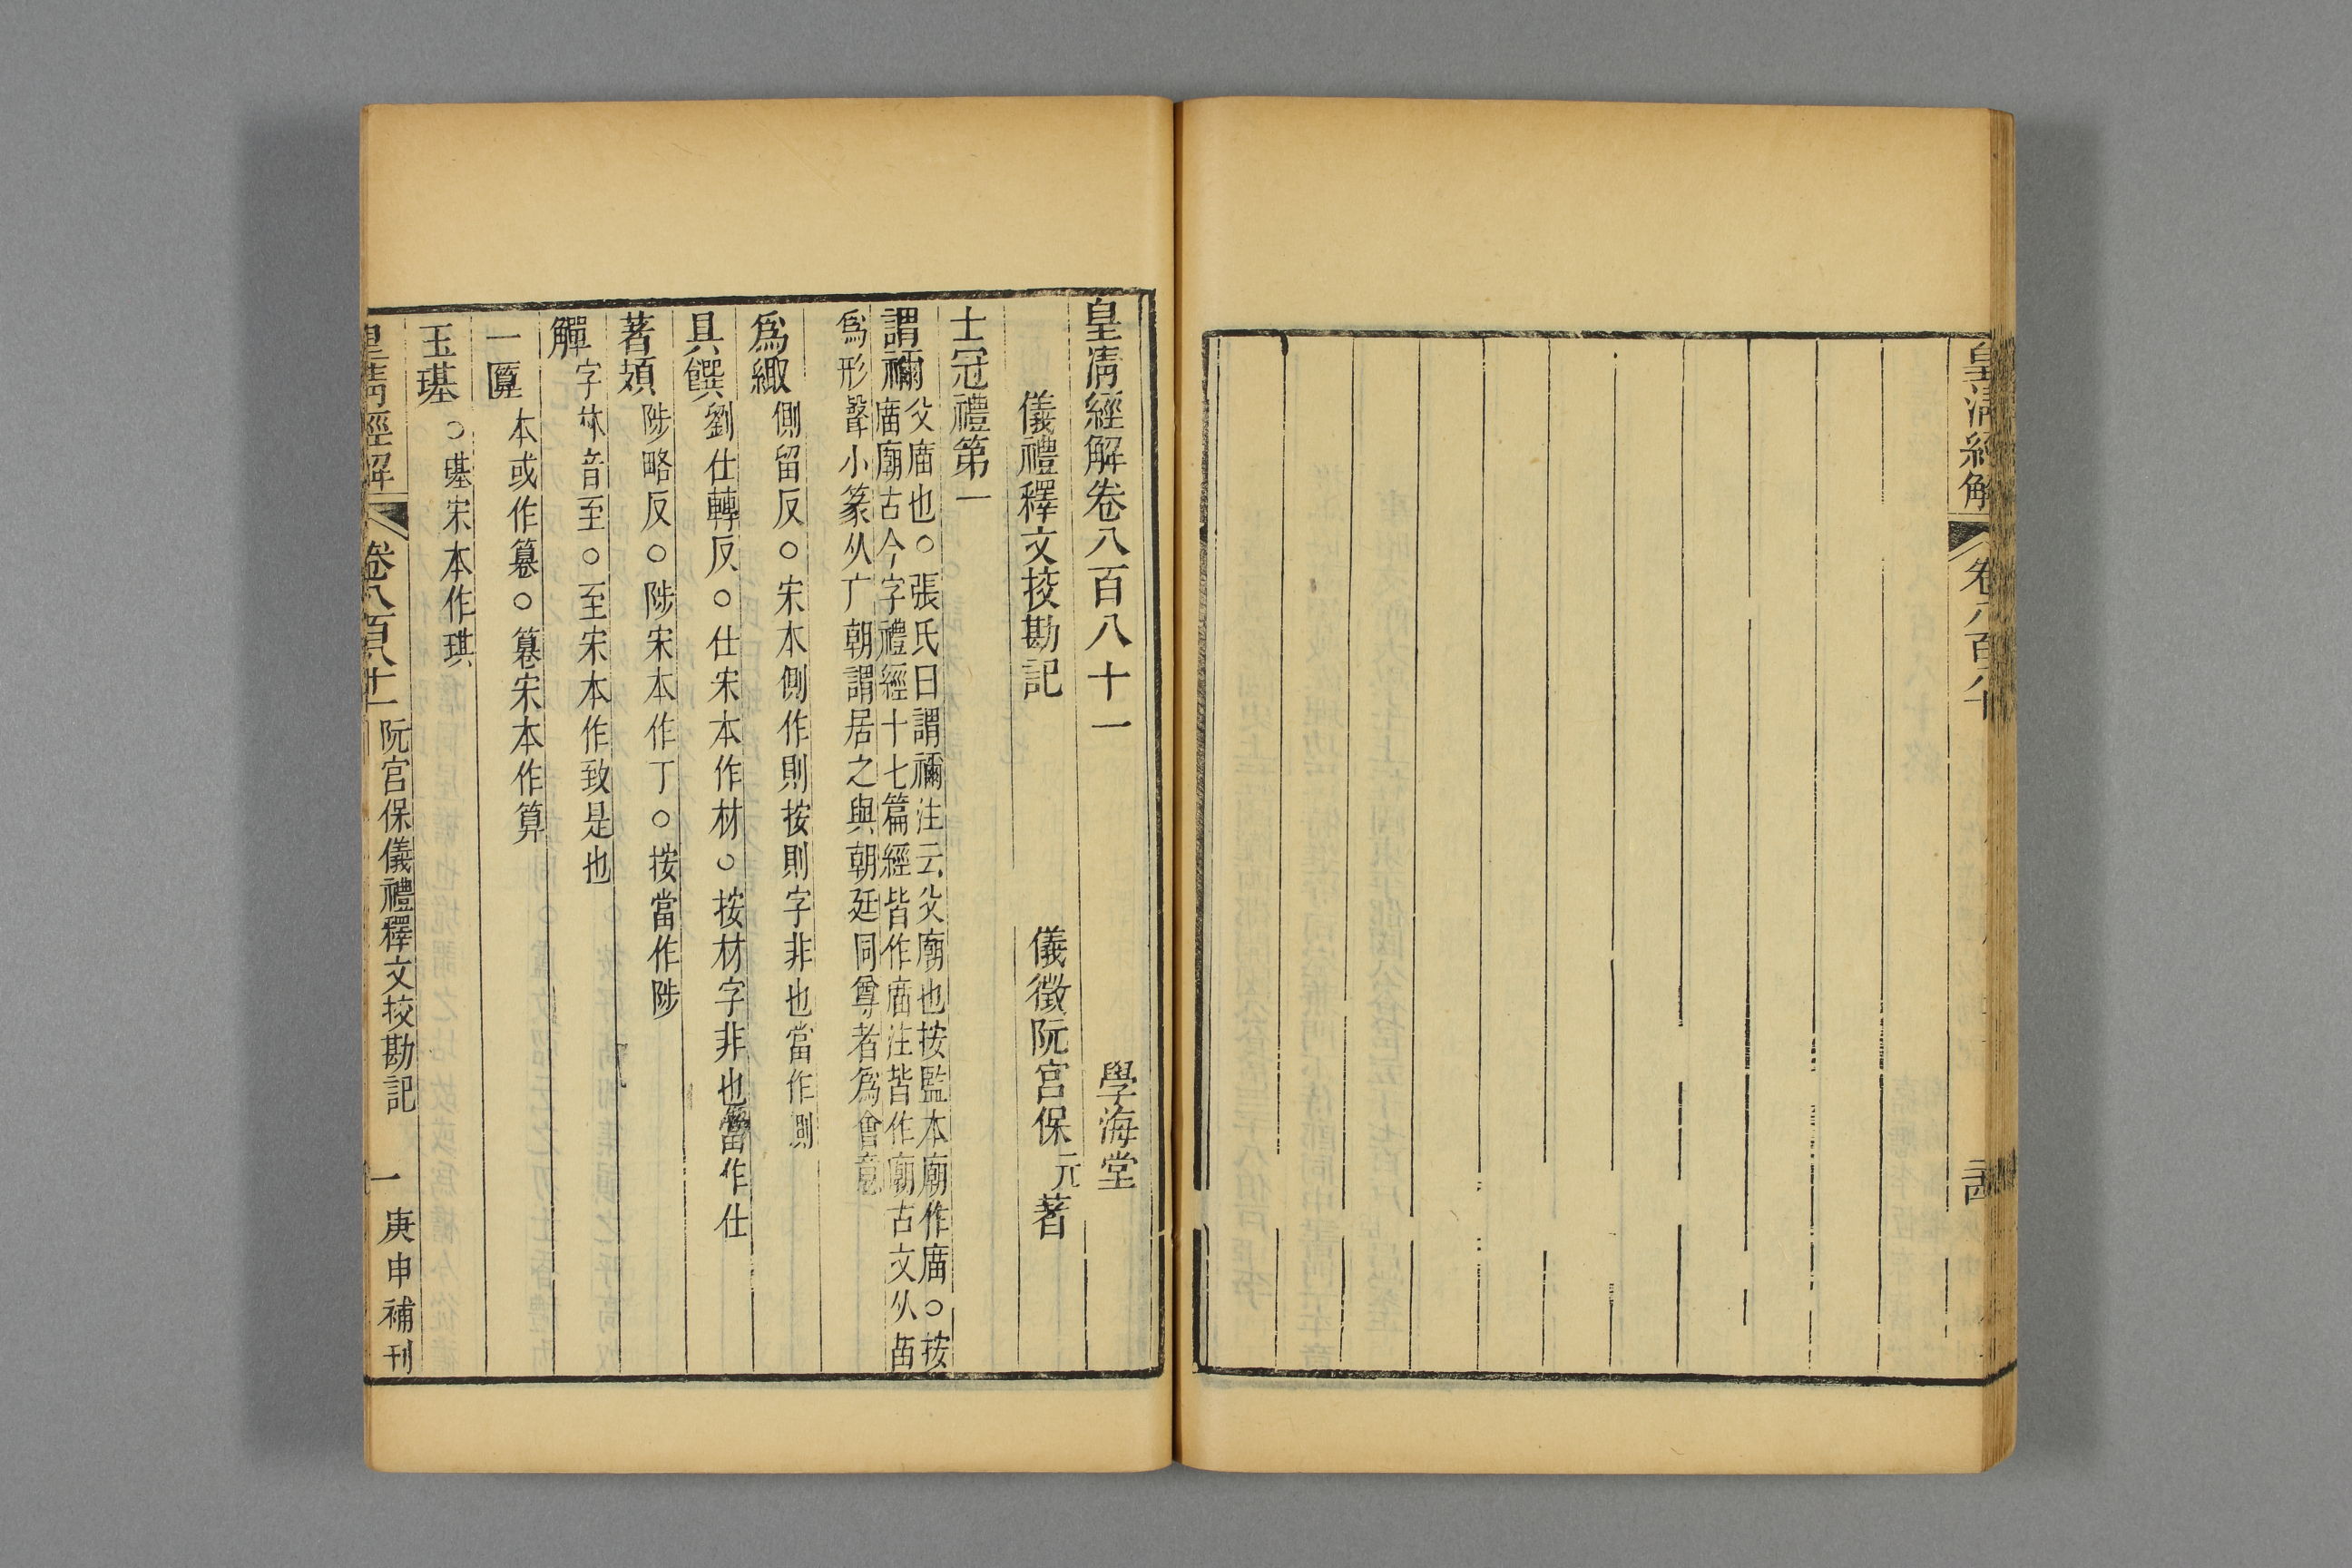 皇清經解
卷八百八十
皇清經解卷八百八十一
學海堂
儀禮釋文挍勘記
儀徵阮宮保元著
士冠禮第一
謂禰
父庿也○張氏曰謂禰注云父廟也按監本廟作庿○按
庿廟古今字禮經十七篇經皆作庿注皆作廟古文从苗
爲形聲小篆从广朝謂居之與朝廷同尊者爲會意
爲緅
側留反○宋本側作則按則字非也當作側
具饌
劉仕轉反○仕宋本作材○按材字非也當作仕
著頍
陟略反○陟宋本作丁○按當作陟
觶
字林音至○至宋本作致是也
一匴
本或作篹○篹宋本作算
玉璂
○璂宋本作琪
皇清經解
卷八百八十一
阮宮保儀禮釋文挍勘記
一
庚申補刊